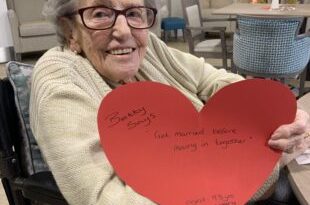 Betty
Says
"Get married before
moving in together"
aged 95 yrs